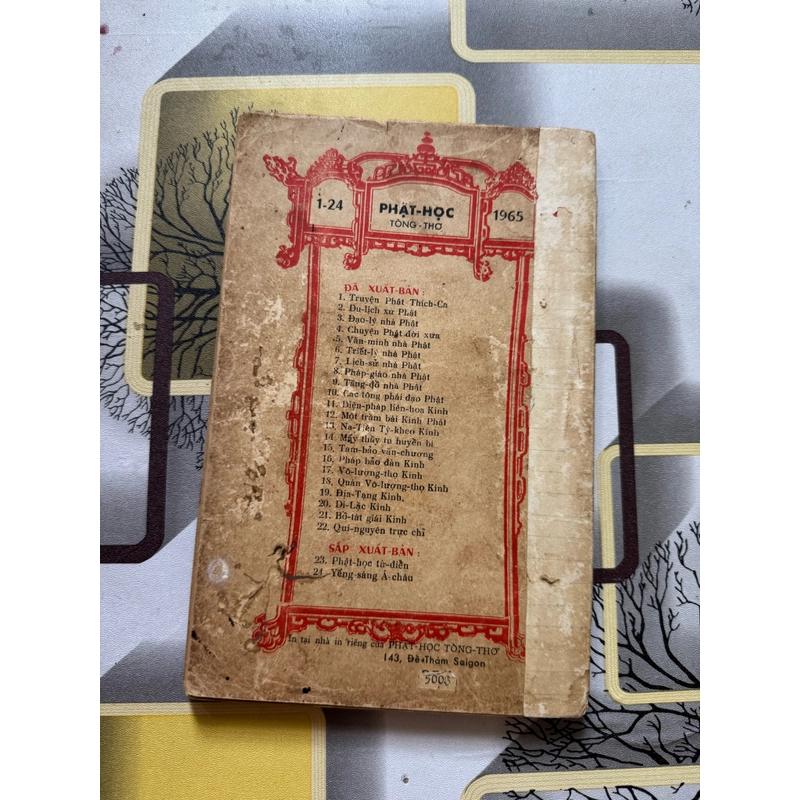 1-24
PHẬT-HỌC
TÒNG-THƠ
1965
ĐÃ XUẤT-BẢN :
1. Truyện Phật Thích-Ca
2. Du-lịch xứ Phật
3. Đạo-lý nhà Phật
4. Chuyện Phật đời xưa
5. Văn-minh nhà Phật
6. Triết-lý nhà Phật
7. Lịch-sử nhà Phật
8. Pháp-giáo nhà Phật
9. Tăng-đồ nhà Phật
10. Các tông phái đạo Phật
11. Diệu-pháp liên-hoa Kinh
12. Một trăm bài Kinh Phật
13. Na-Tiên Tỳ-kheo Kinh
14. Mấy thầy tu huyền bí
15. Tam-bảo văn-chương
16. Pháp bảo đàn Kinh
17. Vô-lượng-thọ Kinh
18. Quán Vô-lượng-thọ Kinh
19. Địa-Tạng Kinh.
20. Di-Lặc Kinh
21. Bồ-tát giái Kinh
22. Qui-nguyên trực chỉ
SẮP XUẤT-BẢN :
23. Phật-học từ-điển
24. Yểng-sáng Á-châu
In tại nhà in riêng của PHẬT-HỌC TÒNG-THƠ
143, Đề-Thám Saigon
5003